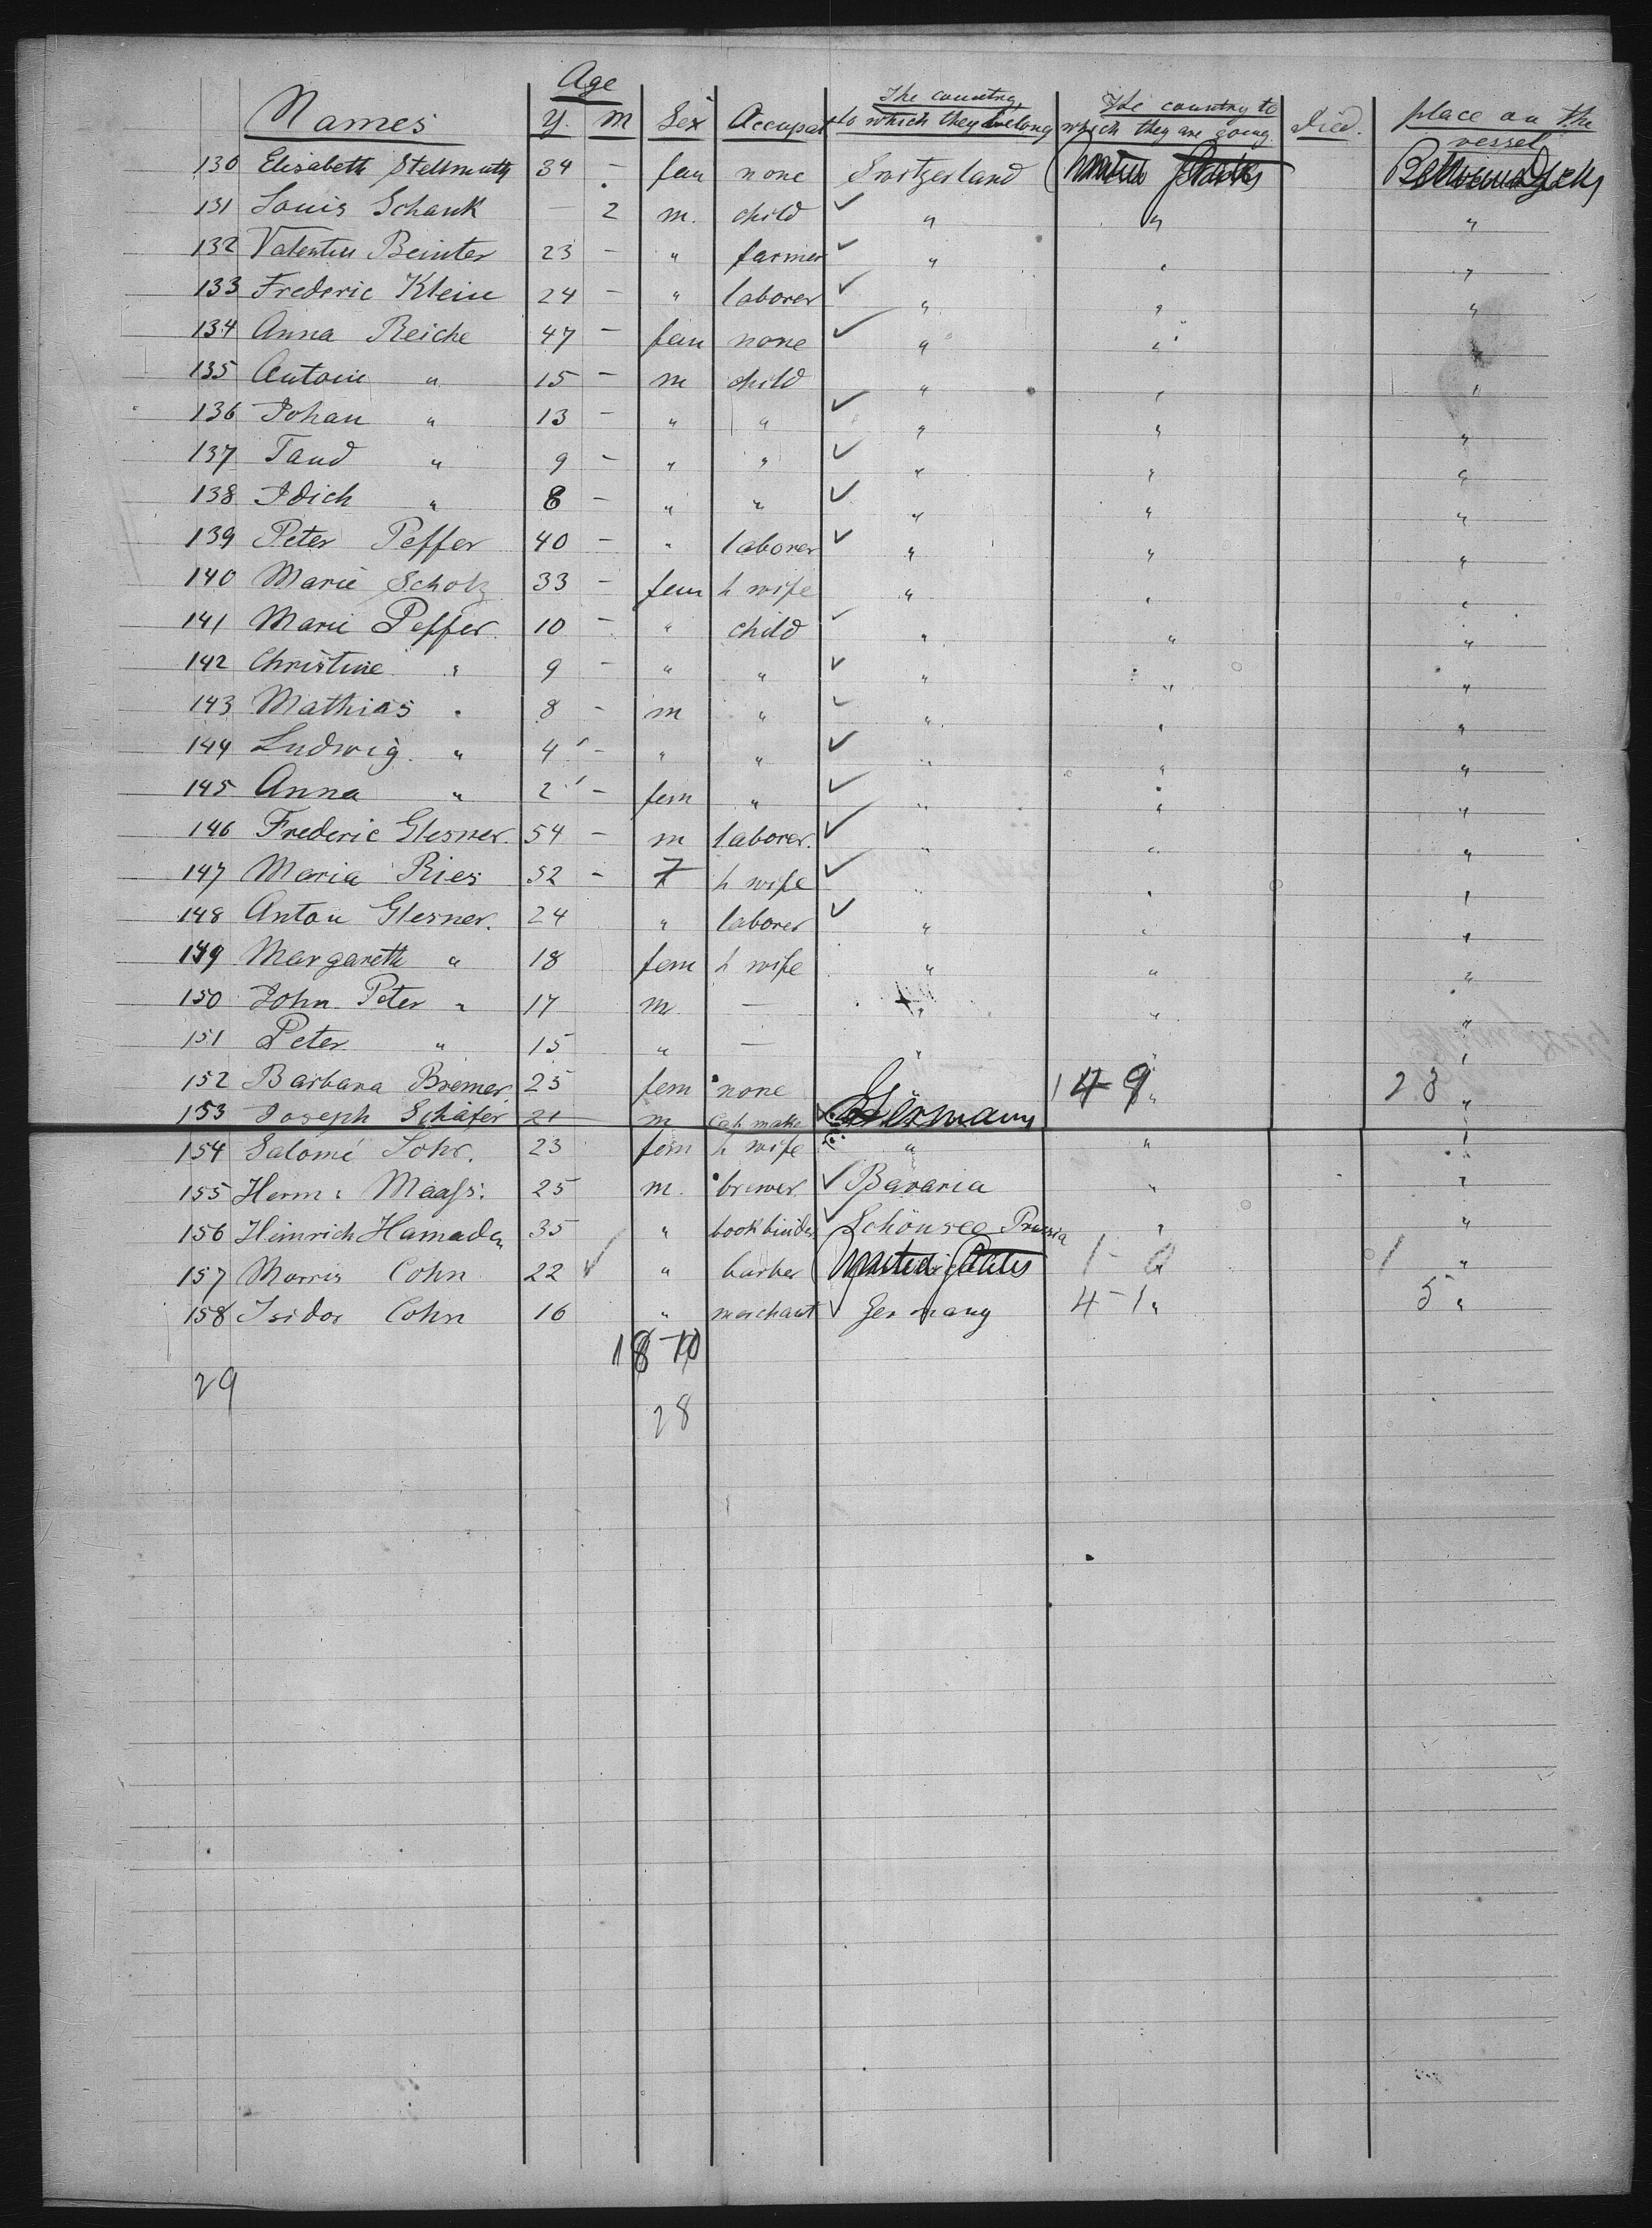 Age
Names Y. M Sex Occupat The country to which they belong The country to which they are going Died. place on the vessel
130 Elisabeth Stellmuth 34 — fem none Switzerland United States Between Decks
131 Louis Schank — 2 m. child ✓ " " "
132 Valentin Beinter 23 — " farmer ✓ " " "
133 Frederic Klein 24 — " laborer ✓ " " "
134 Anna Reiche 47 — fem none ✓ " " "
135 Antoin " 15 — m child " " "
136 Johan " 13 — " " ✓ " " "
137 Taud " 9 — " " ✓ " " "
138 Idich " 8 — " " ✓ " " "
139 Peter Peffer 40 — " laborer ✓ " " "
140 Marie Scholz 33 — fem h wife " " "
141 Marie Peffer. 10 — " child ✓ " " "
142 Christine " 9 — " " ✓ " " "
143 Mathias " 8 — m " ✓ " " "
144 Ludwig. " 4 — " " ✓ " " "
145 Anna " 2 — fem " ✓ " " "
146 Frederic Glesner. 54 — m laborer. ✓ " " "
147 Maria Ries 52 — f h wife ✓ " " "
148 Anton Glesner. 24 " laborer ✓ " " "
149 Margareth " 18 fem h wife " " "
150 John Peter " 17 m. — " " "
151 Peter " 15 " — " " "
152 Barbara Bremer 25 fem none 14-9 " 28 "
153 Joseph Schäfer 21 m Cap mak. ✓ Germany
154 Salomé Lohr. 23 fem h wife " " "
155 Herm: Maaſs: 25 m. brewer. ✓ Bavaria " "
156 Heinrich Hamada 35 " book binder ✓ Schönsee Prussia " "
157 Morris Cohn 22 ✓ " barber United States 1-0 " 1 "
158 Isidor Cohn 16 " merchant ✓ Germany 4-1 " 5 "
18-10
29
28